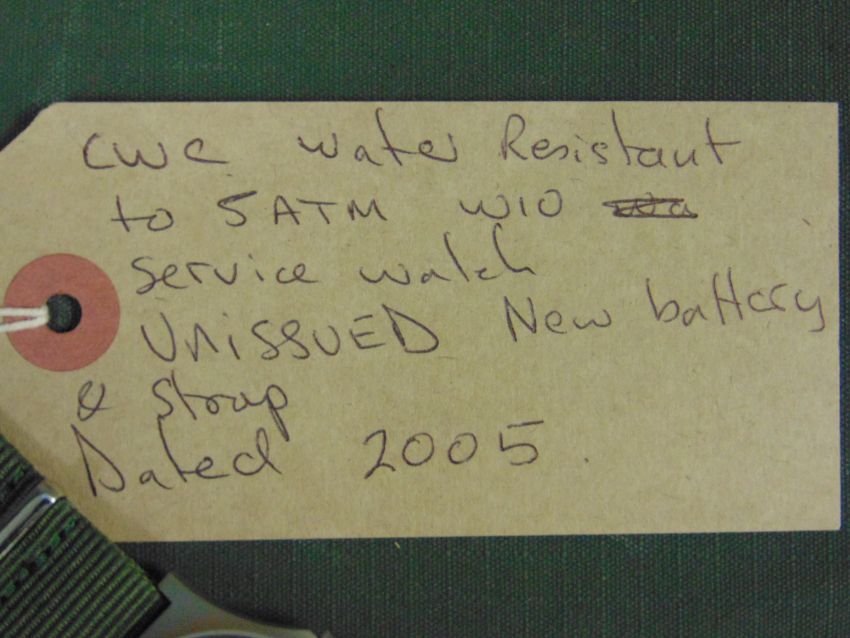 CWC Water Resistant
to 5ATM W10
Service watch
UNISSUED New battery
& strap
Dated 2005.